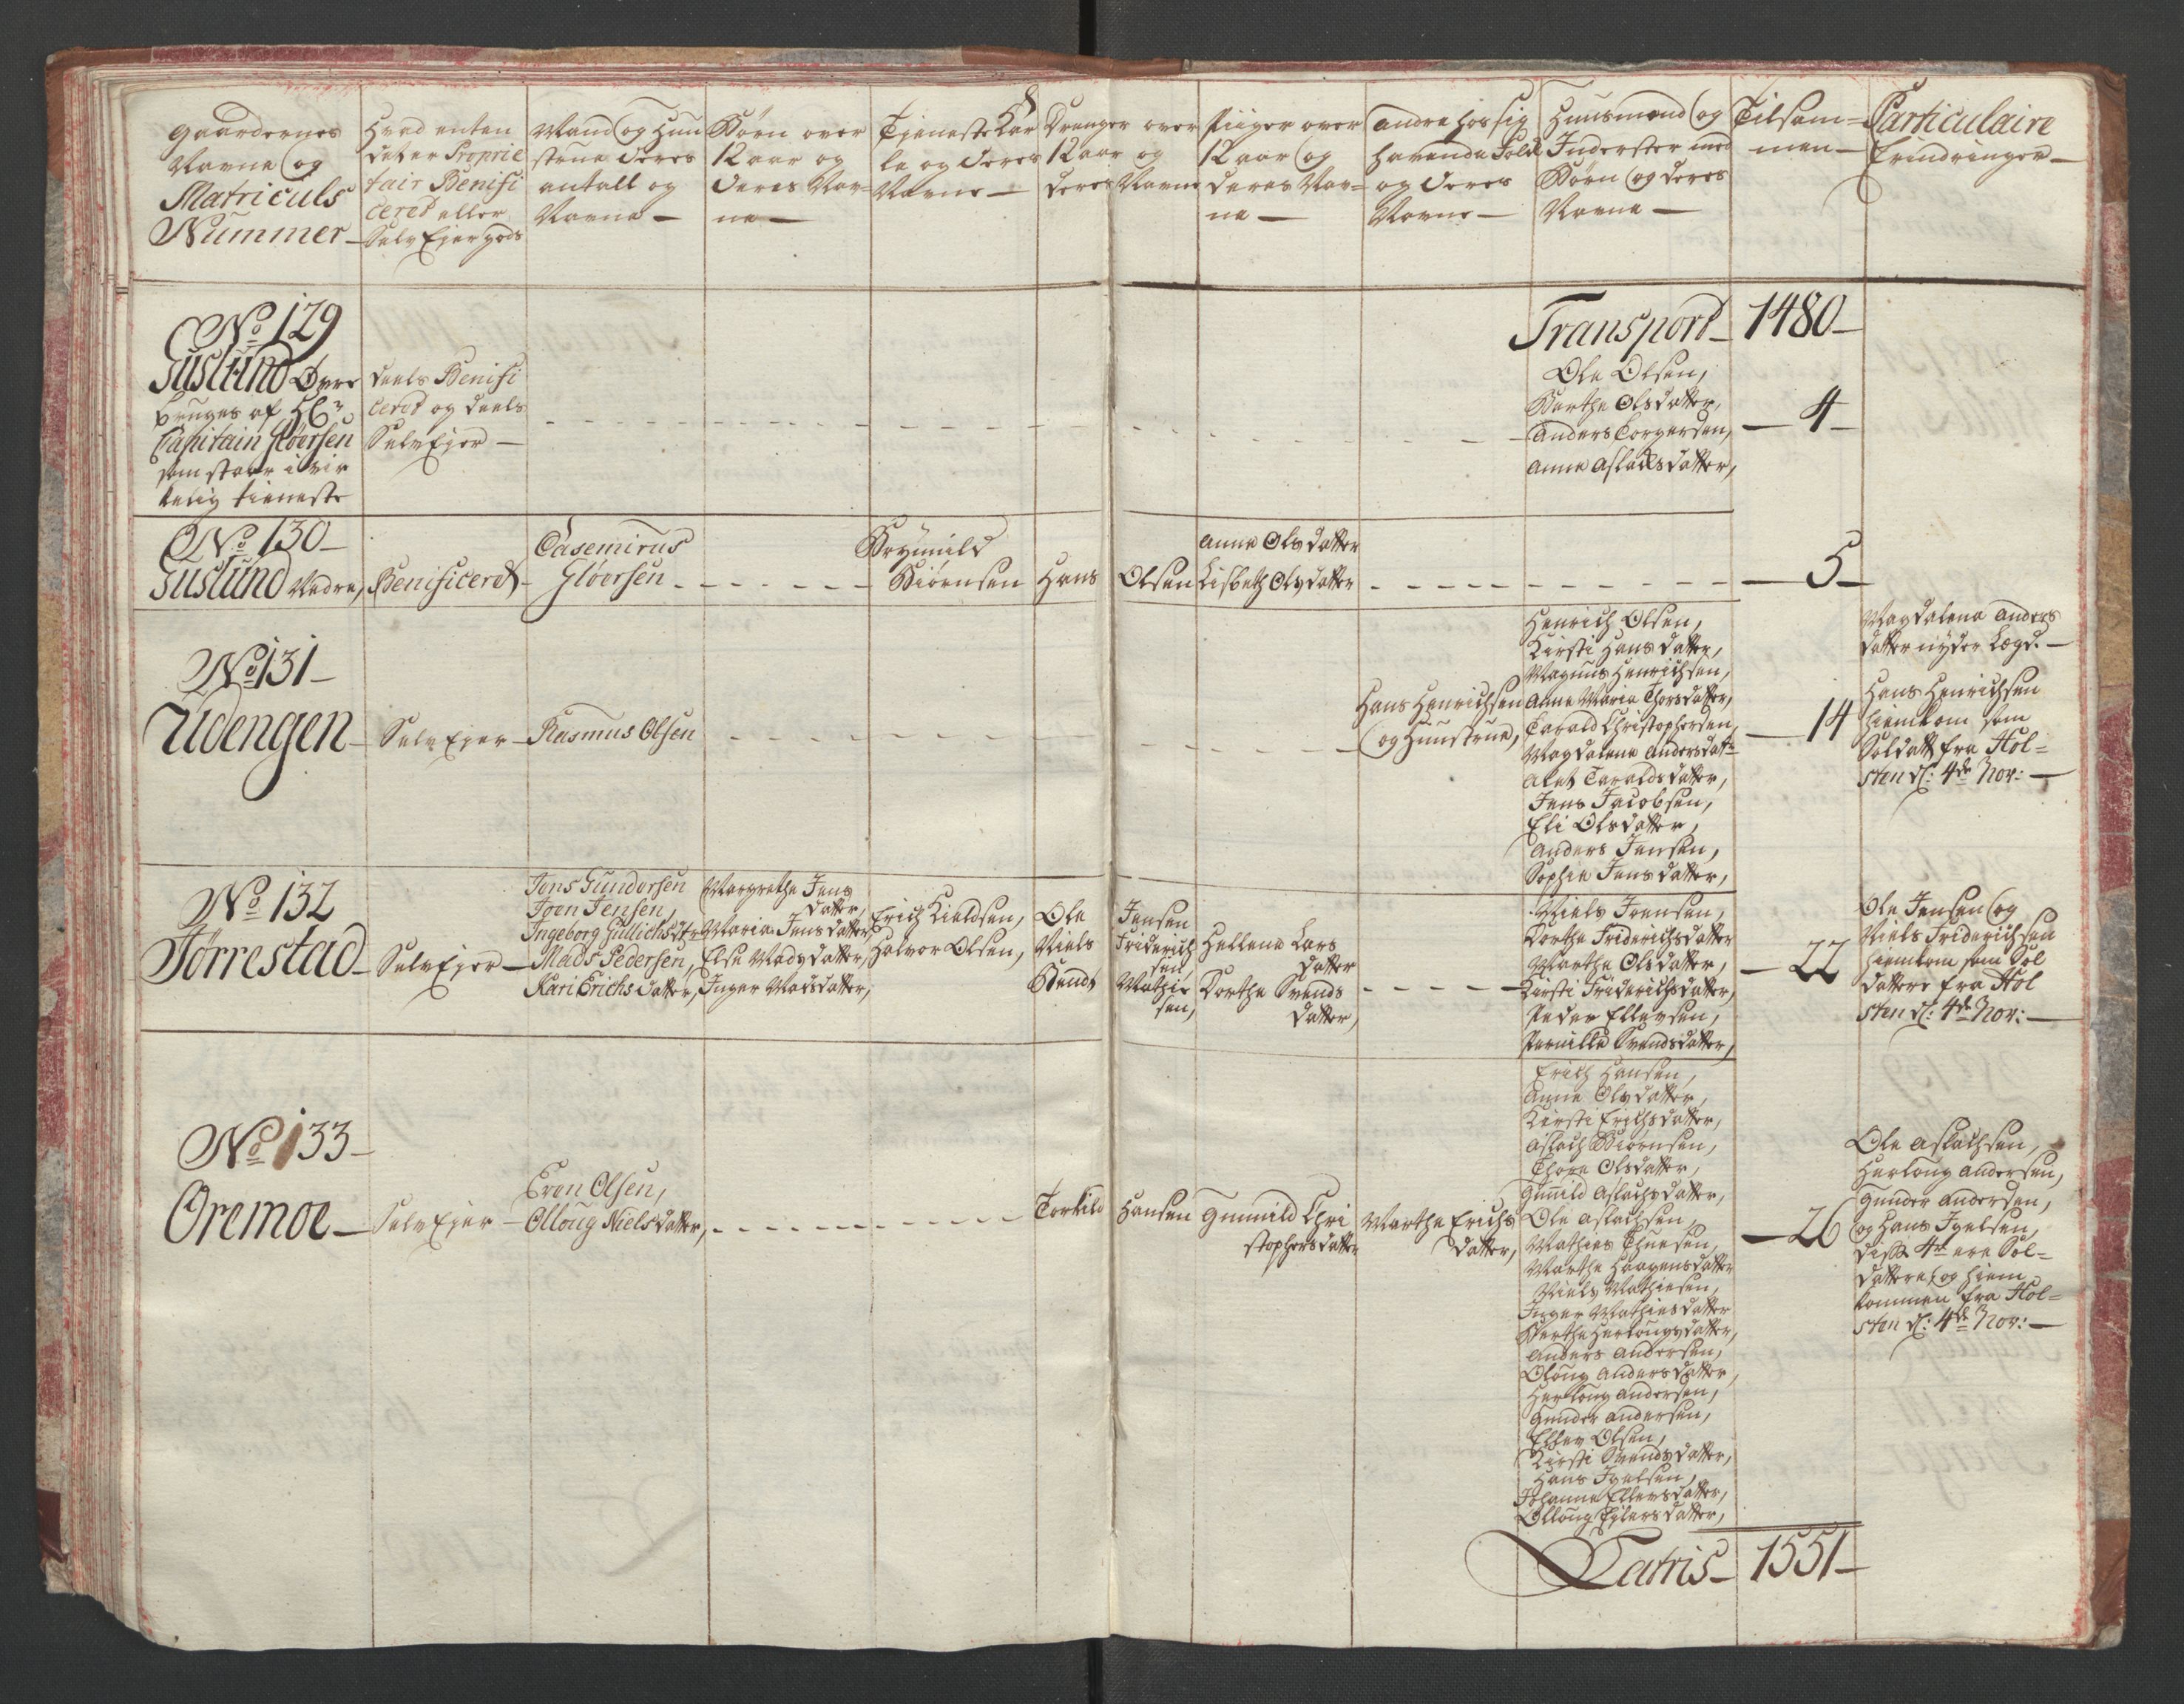 Gaardernes
Navne og
Matriculs
Nummer
Hvad enten
det er Proprie
tair Benifi
ceret eller
Selv Ejer gods
Mand og Hun
strue deres
antall og
Navne
Børn over
12 aar og
deres Nav-
ne
Tieneste Kar
le og deres
Navne
Drenger over
12 aar og
deres Navne
Piiger over
12 aar og
deres Nav-
ne
Andre hos sig
havende Folk
og deres
Navne
Huusmænd og
Inderster med
Børn og deres
Navne
Tilsam-
men
Particulaire
Erindringer
Transport 1480
No 129
Guslund Øvre
bruges af Hr
Capitain Gløersen
som staar i vir
kelig tieneste
deels Benifi
ceret og deels
Selv Ejer
Ole Olsen,
Berthe Olsdatter,
Anders Torgersen,
Anne Aslachsdatter,
4
No 130
Guslund Nedre,
Benificeret
Casemirus
Gløersen
Brynnild
Biørnsen
Hans Olsen
Anne Olsdatter
Lisbeth Olsdatter
5
No 131
Udengen
Selv Ejer
Rasmus Olsen
Hans Henrichsen
og Huustrue,
Henrich Olsen,
Kirsti Hansdatter,
Magnus Henrichsen,
Anne Maria Thorsdatter,
Tarald Christophersen,
Magdalena Andersdatr
Alet Taraldsdatter,
Jens Jacobsen,
Eli Olsdatter,
Anders Jensen,
Sophie Jensdatter,
14
Magdalena Anders
datter nyder Lægd.
Hans Henrichsen
Hiemkom som
Soldatt fra Hol-
sten d: 4de Nov:
No 132
Torrestad
Selv Ejer
Jens Gundersen
Joen Jensen,
Ingeborg Gullichsdtr
Mads Pedersen,
Kari Erichsdatter,
Margrethe Jens
datter,
Maria Jensdatter,
Else Madsdatter,
Inger Madsdatter,
Erich Kieldsen,
Halvor Olsen,
Ole Jensen
Niels Friderich
sen,
Bendt Mathie
sen,
Hellene Lars
datter
Dorthe Svends
datter,
Niels Jensen,
Dorthe Friderichsdatter
Marthe Olsdatter,
Kirsti Friderichsdatter,
Peder Ellevsen,
Pernille Svendsdatter,
22
Ole Jensen og
Niels Friderichsen
Hiemkom som Sol
dattere fra Hol
sten d: 4de Nov:
No 133
Oremoe
Selv Ejer
Even Olsen,
Olloug Nielsdatter,
Torkild Hansen
Gunnild Chri
stophersdatter
Marthe Erichs
datter,
Erich Hansen,
Anne Olsdatter,
Kirsti Erichsdatter,
Aslach Biørnsen,
Thore Olsdatter,
Gunnild Aslachsdatter,
Ole Aslachsen,
Mathies Thuesen,
Marthe Haagensdatter
Niels Mathiesen,
Inger Mathiesdatter
Berthe Herlougsdatter,
Anders Andersen,
Oloug Andersdatter,
Herloug Andersen,
Gunder Andersen,
Ellev Olsen,
Kirsti Svendsdatter,
Hans Igelsen,
Johanne Ellevsdatter,
Olloug Ejlersdatter,
26
Ole Aslachsen,
Herloug Andersen,
Gunder Andersen,
og Hans Igelsen,
disse 4re ere Sol-
dattere og hiem
kommen fra Hol-
sten d: 4de Nov:
Latris 1551